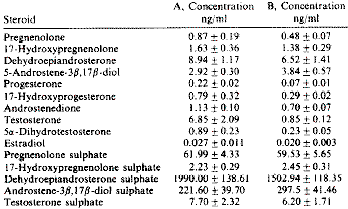 A, Concentration B, Concentration
Steroid ng/ml ng/ml
Pregnenolone 0.87 ± 0.19 0.48 ± 0.07
17-Hydroxypregnenolone 1.63 ± 0.36 1.38 ± 0.29
Dehydroepiandrosterone 8.94 ± 1.17 6.52 ± 1.41
5-Androstene-3β,17β-diol 2.92 ± 0.30 3.84 ± 0.57
Progesterone 0.22 ± 0.02 0.07 ± 0.01
17-Hydroxyprogesterone 0.79 ± 0.32 0.29 ± 0.02
Androstenedione 1.13 ± 0.10 0.70 ± 0.07
Testosterone 6.85 ± 2.09 0.85 ± 0.12
5α-Dihydrotestosterone 0.89 ± 0.23 0.23 ± 0.05
Estradiol 0.027 ± 0.011 0.020 ± 0.003
Pregnenolone sulphate 61.99 ± 4.33 59.53 ± 5.65
17-Hydroxypregnenolone sulphate 2.23 ± 0.29 2.45 ± 0.31
Dehydroepiandrosterone sulphate 1990.00 ± 138.61 1502.94 ± 118.35
Androstene-3β,17β-diol sulphate 221.60 ± 39.70 297.5 ± 41.46
Testosterone sulphate 7.70 ± 2.32 6.20 ± 1.71